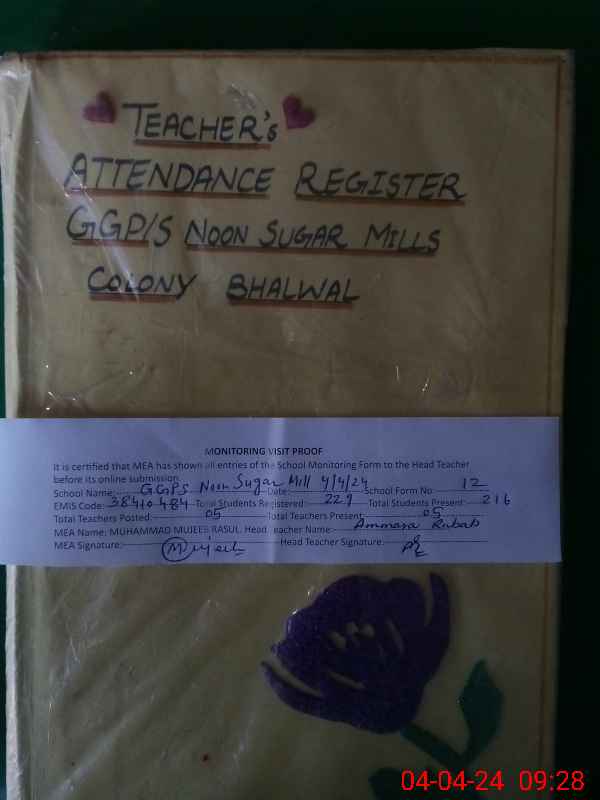 TEACHER's
ATTENDANCE REGISTER
GGP/S NOON SUGAR MILLS
COLONY BHALWAL
MONITORING VISIT PROOF
It is certified that MEA has shown all entries of the School Monitoring Form to the Head Teacher
before its online submission
School Name: GGPS Noon Sugar Mill Date: 4/4/24 School Form No 12
EMIS Code: 38410484 Total Students Registered: 229 Total Students Present: 216
Total Teachers Posted: 05 Total Teachers Present: 05
MEA Name: MUHAMMAD MUJEEB RASUL. Head Teacher Name: Ammara Rubab
MEA Signature: Mujeeb Head Teacher Signature:
04-04-24 09:28